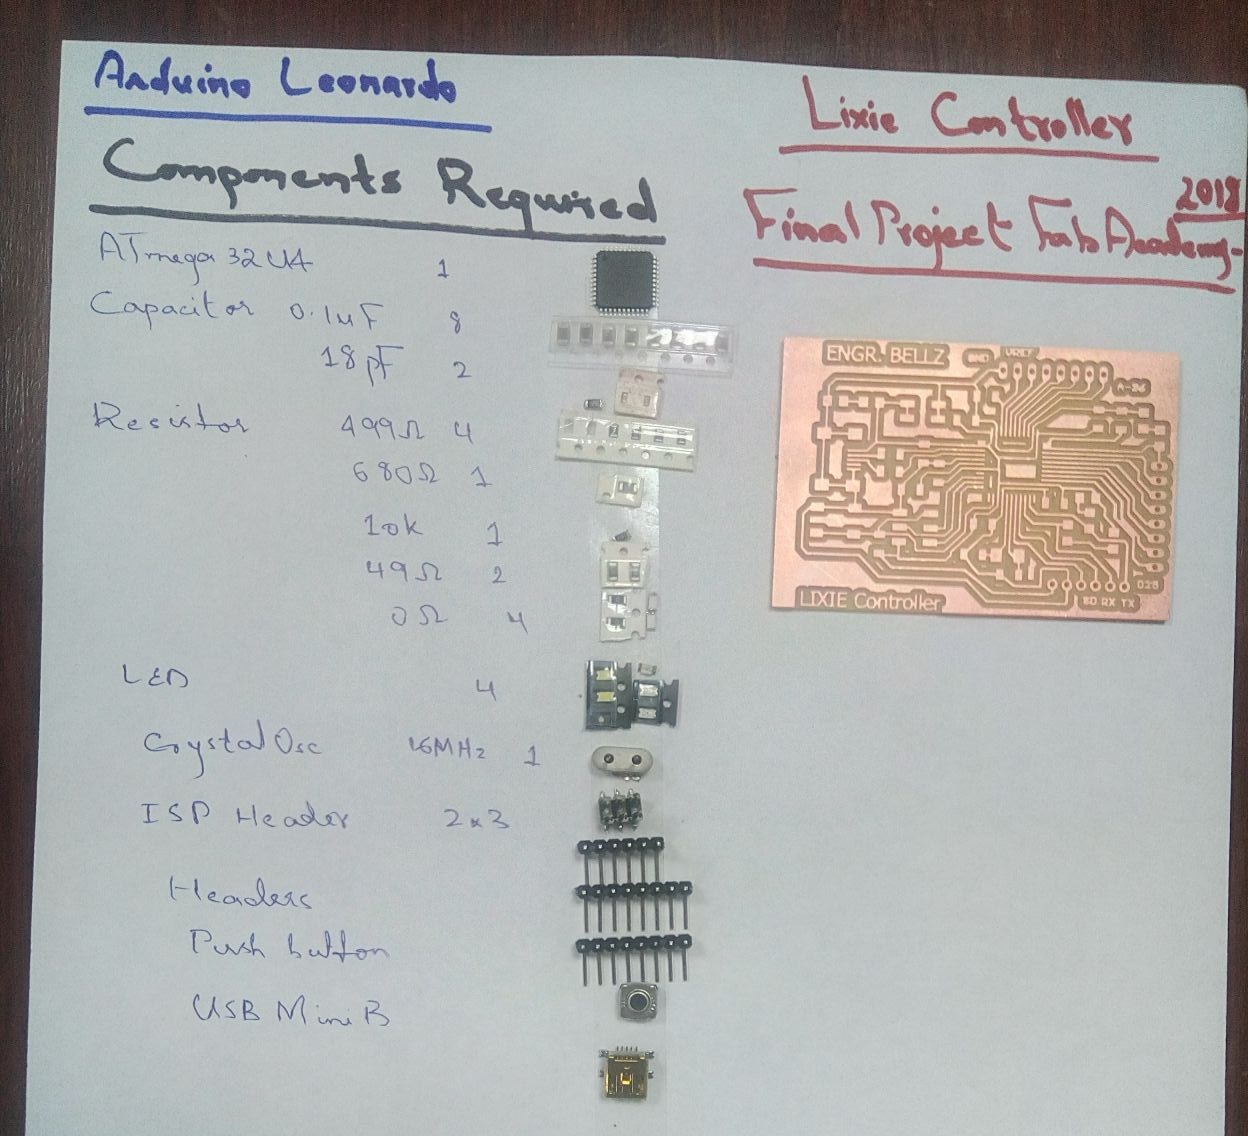 Arduino Leonardo
Components Required
ATmega 32U4 1
Capacitor 0.1uF 8
18pF 2
Resistor 499Ω 4
680Ω 1
10k 1
49Ω 2
0Ω 4
LED 4
Crystal Osc 16MHz 1
ISP Header 2x3
Headers
Push button
USB Mini B
Lixie Controller
Final Project Fab Academy-
2018
ENGR. BELLZ
GND VREF
LIXIE Controller
RX TX